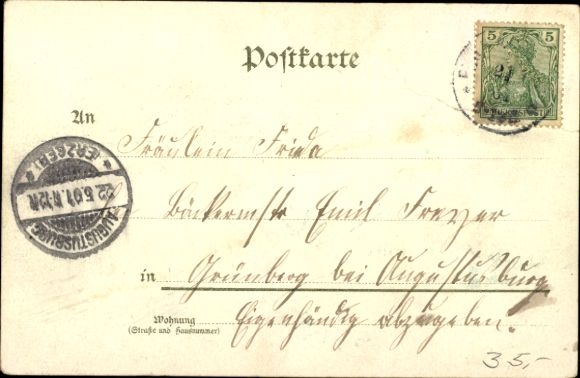 Postkarte
5 5
21
An
Fräulein Frida
(ERZGEB.)
22.5.01.
AUGUSTUSBURG
Bäckermstr Emil Freyer
in Grünberg bei Augustusburg
Wohnung
(Straße und Hausnummer)
Eigenhändig abzugeben.
35,-